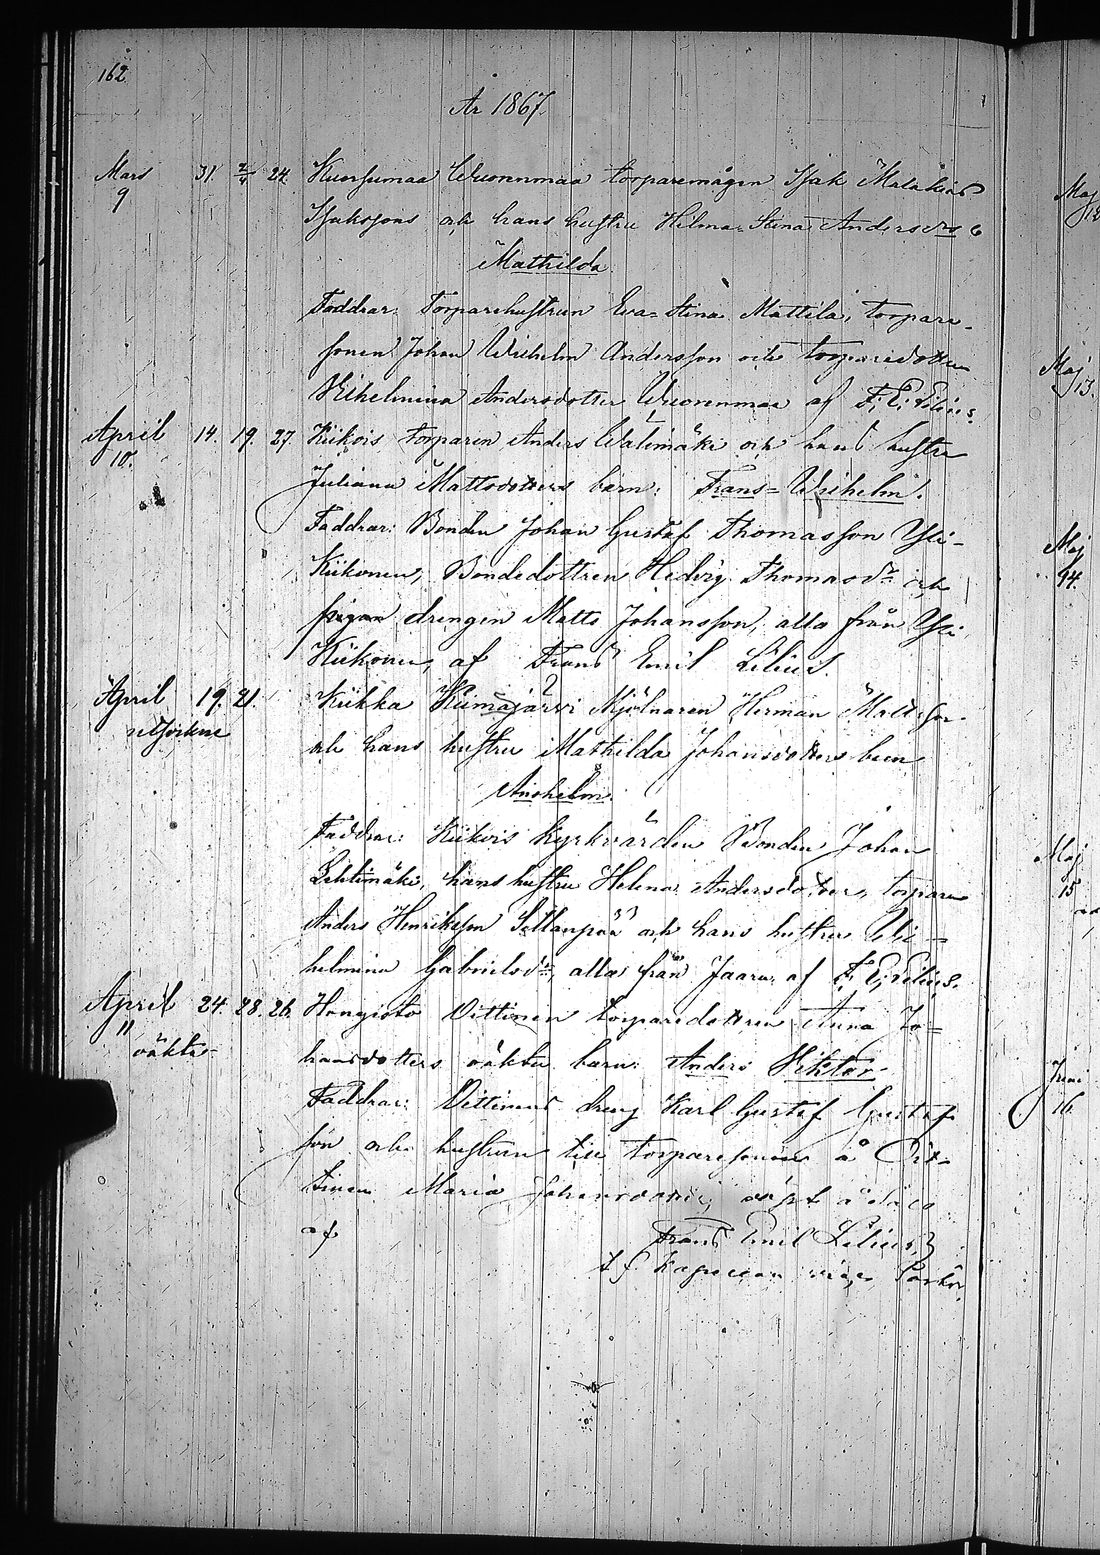 162
År 1867
Mars 31. 2/4 24. Kuorsumaa Wuorenmaa torparemågen Isak Malakias
9 Isaksons och hans hustru Hilma Stina Andersdrs
Mathilda
Faddrar: Torparehustrun Eva-Stina Mattila, torpare-
sonen Johan Wilhelm Andersson och torparedottren
Vilhelmina Andersdotter Wuorenmaa af F. E. Lilius.
April 14. 19. 27. Kiikois torparen Anders Walimäki och hans hustru
10. Juliana Mattsdotters barn: Frans-Wilhelm.
Faddrar: Bonden Johan Gustaf Thomasson Yli-
Kiikonen, Bondedottren Hedvig Thomasdr och
pigan drengen Matts Johansson, alla från Yli
Kiikonen, af Frans Emil Lilius.
April 19. 21. Kiikka Kiimajärvi Mjölnaren Herman Mattsson
och hans hustru Mathilda Johansdotters barn
Anshelm
Faddrar: Kiikois kyrkvärden Bonden Johan
Lehtimäki, hans hustru Helena Andersdotter, torparen
Anders Henriksson Sillanpää och hans hustru Vil-
helmina Gabrielsdr, alla från Jaara, af F. E. Lilius.
April 24. 28. 26. Hongisto Vittinen torparedottren Anna Jo-
11 hansdotters oäkta barn: Anders Viktor
oäkta
Faddrar: Vittinens dreng Karl Gustaf Gustafs
son och hustrun till torparesonen å Vit-
tinen Maria Johansdotter, döpt
af Frans Emil Lilius,
t. f. Kapellan vice Pastor.
Maj
Maj
13.
Maj
14.
Maj
15
Juni
16